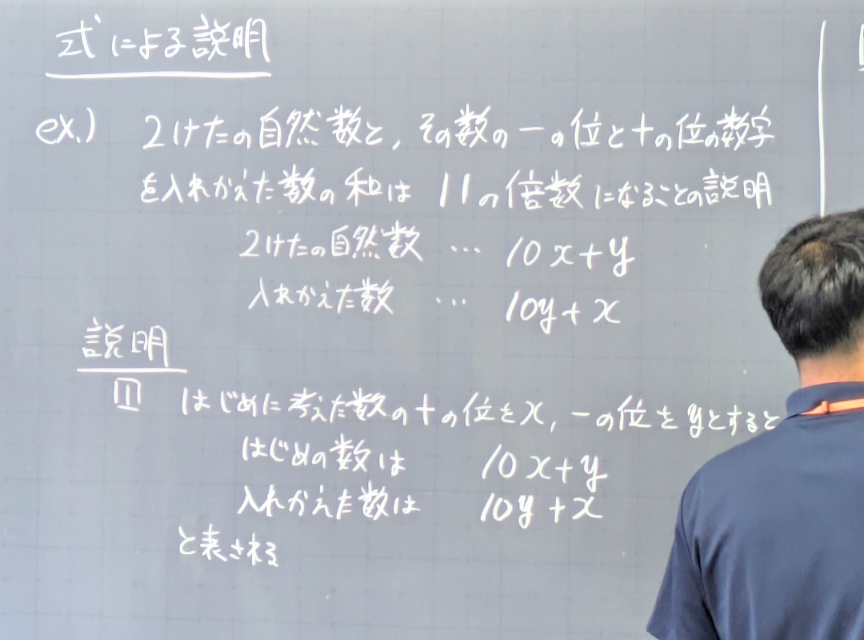 式による説明
ex.) 2けたの自然数と,その数の一の位と十の位の数字
を入れかえた数の和は 11の倍数になることの説明
2けたの自然数 … 10x+y
入れかえた数 … 10y+x
説明
1 はじめに考えた数の十の位をx, 一の位をyとすると
はじめの数は 10x+y
入れかえた数は 10y+x
と表される